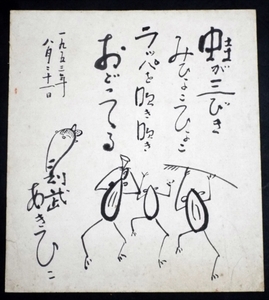 蛙が三びき
みひょこひょこ
ラッパを吹き吹き
おどってる
一九五三年
八月二十一日
則武
あきひこ